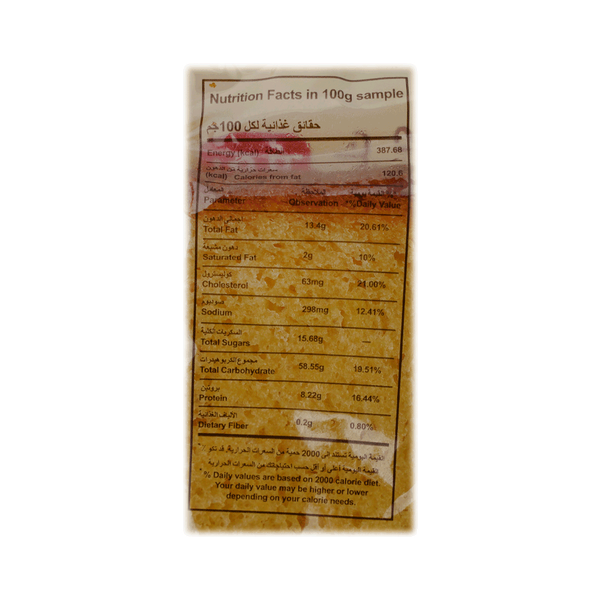 Nutrition Facts in 100g sample
حقائق غذائية لكل 100جم
Energy (kcal) الطاقة 387.68
سعرات حرارية من الدهون
(kcal) Calories from fat 120.6
المعامل الملاحظة القيمة اليومية
Parameter Observation *%Daily Value
اجمالي الدهون
Total Fat 13.4g 20.61%
دهون مشبعة
Saturated Fat 2g 10%
كوليسترول
Cholesterol 63mg 21.00%
صوديوم
Sodium 298mg 12.41%
السكريات الكلية
Total Sugars 15.68g —
مجموع الكربوهيدرات
Total Carbohydrate 58.55g 19.51%
بروتين
Protein 8.22g 16.44%
الالياف الغذائية
Dietary Fiber 0.2g 0.80%
القيمة اليومية تستند إلى 2000 حمية من السعرات الحرارية. قد تكو
القيمة اليومية أعلى أو أقل حسب احتياجاتك من السعرات الحرارية
* % Daily values are based on 2000 calorie diet.
Your daily value may be higher or lower
depending on your calorie needs.